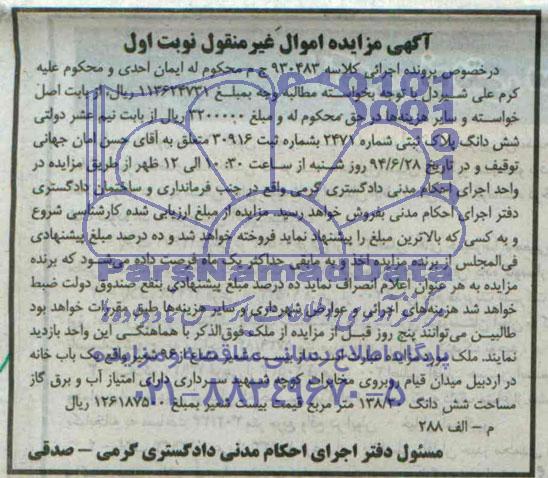 آگهی مزایده اموال غیرمنقول نوبت اول
درخصوص پرونده اجرائی کلاسه ۹۳۰۴۸۳ ج م محکوم له ایمان احدی و محکوم علیه
کرم علی با توجه بخواسته مطالبه وجه بمبلغ ۱۱۳۶۲۴۷۳۱ ریال از بابت اصل
خواسته و سایر هزینه‌ها در حق محکوم له و مبلغ ۳۲۰۰۰۰۰ ریال از بابت نیم عشر دولتی
شش دانگ پلاک ثبتی شماره ۲۴۷۱ بشماره ثبت ۳۰۹۱۶ متعلق به آقای حسن امان جهانی
توقیف و در تاریخ ۹۴/۶/۲۸ روز شنبه از ساعت ۱۰:۳۰ الی ۱۲ ظهر از طریق مزایده در
واحد اجرای احکام مدنی دادگستری گرمی واقع در جنب فرمانداری و ساختمان دادگستری
دفتر اجرای احکام مدنی بفروش خواهد رسید. مزایده از مبلغ ارزیابی شده کارشناسی شروع
و به کسی که بالاترین مبلغ را پیشنهاد نماید فروخته خواهد شد و ده درصد مبلغ پیشنهادی
فی‌المجلس از برنده مزایده اخذ و به مابقی حداکثر یک ماه فرصت داده می‌شود که برنده
مزایده به هر عنوان اعلام انصراف نماید ده درصد مبلغ پیشنهادی بنفع صندوق دولت ضبط
خواهد شد هزینه‌های اجرائی و عوارض شهرداری و سایر هزینه‌ها طبق مقررات خواهد بود
طالبین می‌توانند پنج روز قبل از مزایده از ملک فوق‌الذکر با هماهنگی این واحد بازدید
نمایند. ملک مورد مزایده عبارت است از واقع یک باب خانه
در اردبیل میدان قیام روبروی مخابرات کوچه شهید سرداری دارای امتیاز آب و برق گاز
مساحت شش دانگ ۱۳۸/۳۰ متر مربع قیمت بیست متغیر بمبلغ ۱۲۶۱۸۷۵۰۰ ریال
م – الف ۲۸۸
مسئول دفتر اجرای احکام مدنی دادگستری گرمی – صدقی
ParsNamadData
پایگاه اطلاع رسانی مناقصه و مزایده
۰۲۱-۸۸۳۴۹۶۷۰-۵